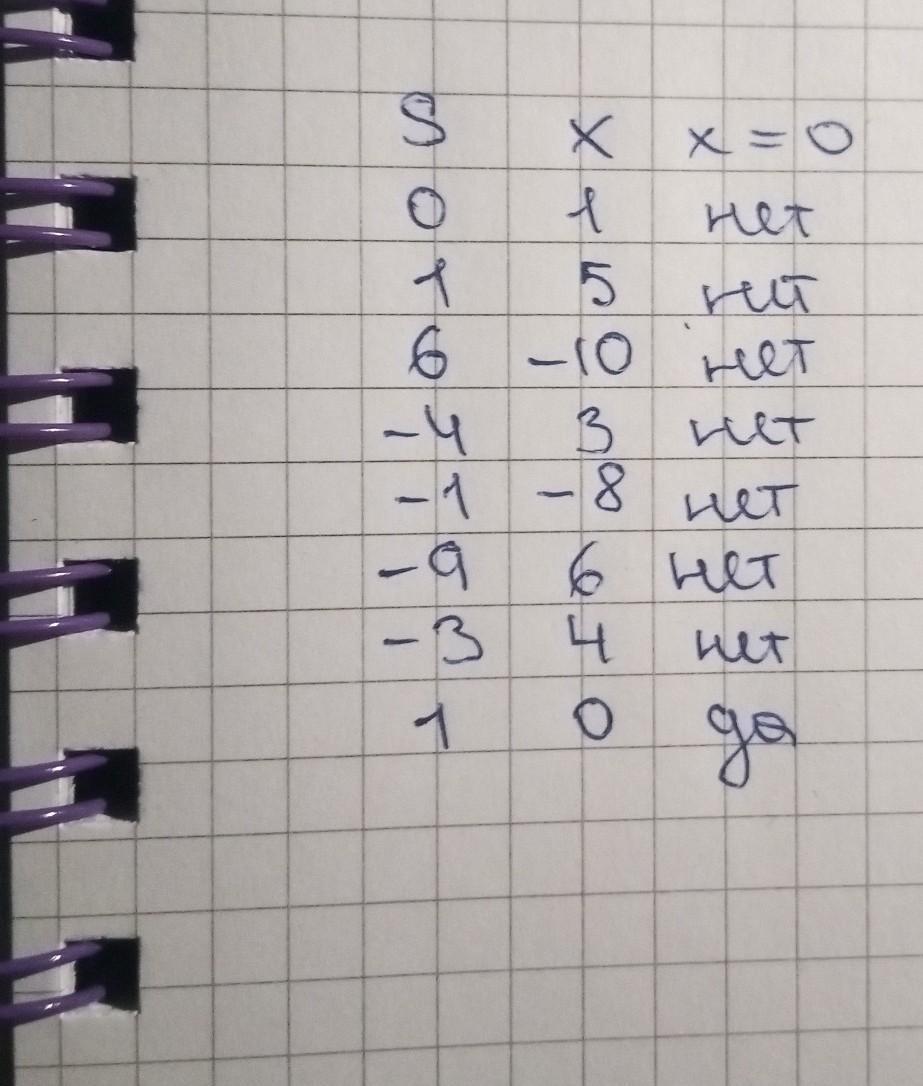 S x x = 0
0 1 нет
1 5 нет
6 -10 нет
-4 3 нет
-1 -8 нет
-9 6 нет
-3 4 нет
1 0 да